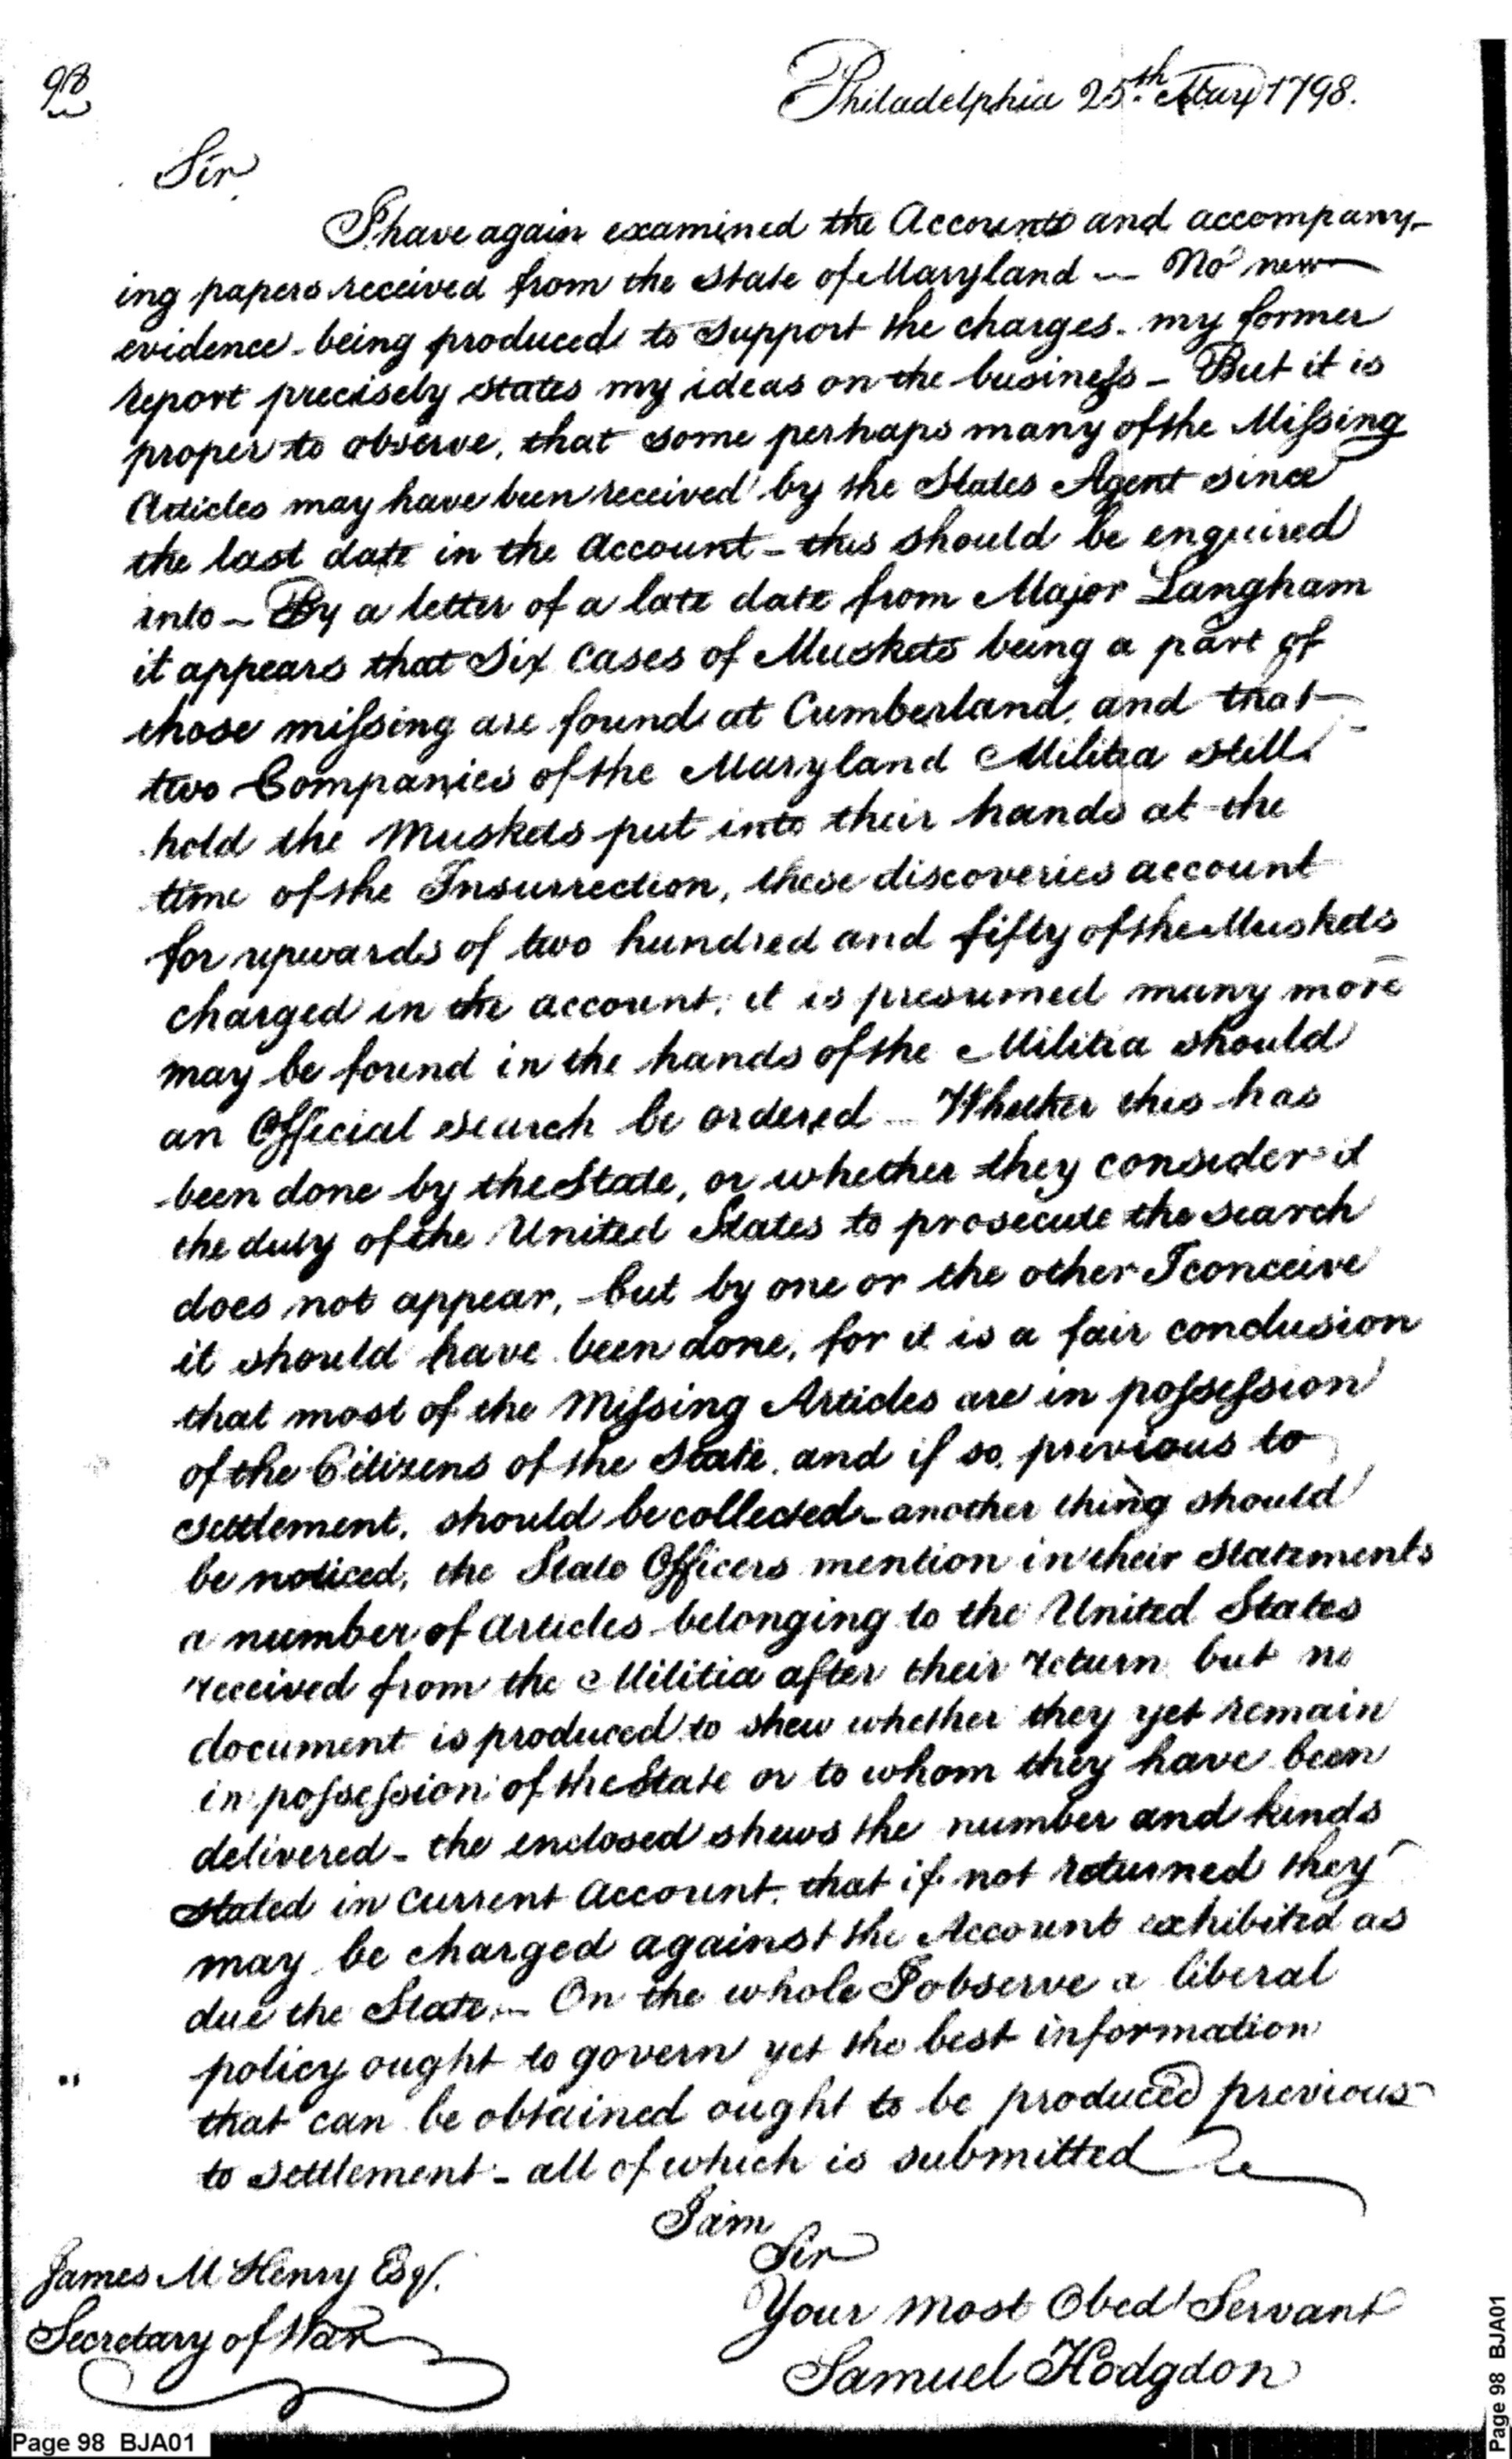 98
Philadelphia 25th May 1798.
Sir
I have again examined the Accounts and accompany-
ing papers received from the State of Maryland — No new
evidence being produced to support the charges. my former
report precisely states my ideas on the business — But it is
proper to observe, that some perhaps many of the Missing
Articles may have been received by the States Agent since
the last date in the Account — this should be enquired
into — By a letter of a late date from Major Langham
it appears that Six Cases of Muskets being a part of
those missing are found at Cumberland, and that
two Companies of the Maryland Militia still
hold the Muskets put into their hands at the
time of the Insurrection, these discoveries account
for upwards of two hundred and fifty of the Muskets
charged in the account, it is presumed many more
may be found in the hands of the Militia should
an Official search be ordered — Whether this has
been done by the State, or whether they consider it
the duty of the United States to prosecute the search
does not appear, but by one or the other I conceive
it should have been done, for it is a fair conclusion
that most of the Missing Articles are in possession
of the Citizens of the State, and if so, previous to
settlement, should be collected — another thing should
be noticed, the State Officers mention in their Statements
a number of articles belonging to the United States
received from the Militia after their return but no
document is produced to shew whether they yet remain
in possession of the State or to whom they have been
delivered — the enclosed shews the number and kinds
stated in current account, that if not returned they
may be charged against the Account exhibited as
due the State. — On the whole I observe a liberal
policy ought to govern yet the best information
that can be obtained ought to be produced previous
to settlement — all of which is submitted
I am
Sir
Your most Obed Servant
Samuel Hodgdon
James McHenry Esqr.
Secretary of War
Page 98 BJA01
Page 98 BJA01